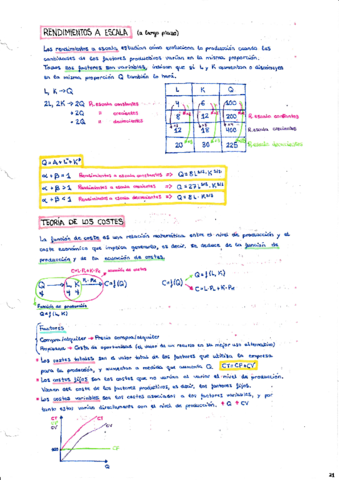 RENDIMIENTOS A ESCALA (a largo plazo)
Los rendimientos a escala estudian cómo evoluciona la producción cuando las
cantidades de los factores productivos varían en la misma proporción.
Todos los factores son variables, indican que si L y K aumentan o disminuyen
en la misma proporción Q también lo hará.
L, K → Q
2L, 2K → 2Q R. escala constantes
+ 2Q " crecientes
- 2Q " decrecientes
L K Q
4 6 100
8 12 200 R. escala constantes
12 18 400 R. escala crecientes
20 30 225 R. escala decrecientes
α + β = 1 Rendimientos a escala constantes =>
α + β > 1 Rendimientos a escala crecientes =>
α + β < 1 Rendimientos a escala decrecientes =>
TEORÍA DE LOS COSTES
La función de coste es una relación matemática entre el nivel de producción y el
coste económico que implica generarlo, es decir, se deduce de la función de
producción y de la ecuación de costes.
C = L·PL + K·PK ecuación de costes
Q → L, K → C = f(Q)
Q = f(L, K)
C = f(Q)
C = L·PL + K·PK
Función de producción
Q = f(L, K)
Factores
Compra/alquiler → Precio compra/alquiler
Propiedad → Coste de oportunidad (el valor de un recurso en su mejor uso alternativo)
Los costes totales son el valor total de los factores que utiliza la empresa
para la producción, y aumentan a medida que aumenta Q. CT = CF + CV
Los costes fijos son los costes que no varían al variar el nivel de producción.
Vienen del coste de los factores productivos, es decir, los factores fijos.
Los costes variables son los costes asociados a los factores variables, y por
tanto estos varían directamente con el nivel de producción. + Q + CV
CT
CV
CF
Q